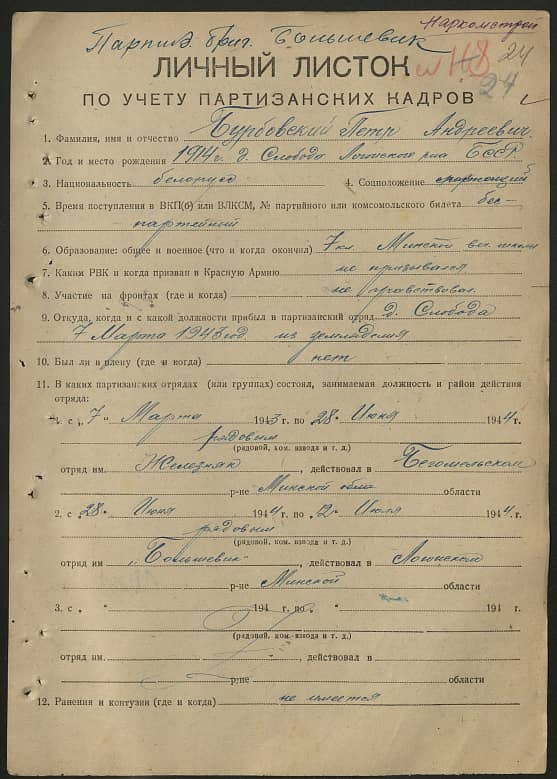 Наркомстрой
Партиз. бриг. Большевик
№ 118 24
24
ЛИЧНЫЙ ЛИСТОК
ПО УЧЕТУ ПАРТИЗАНСКИХ КАДРОВ
1. Фамилия, имя и отчество Бурбовский Петр Андреевич.
2. Год и место рождения 1914 г. д. Слобода Логойского р-на БССР.
3. Национальность белорус 4. Соцположение
5. Время поступления в ВКП(б) или ВЛКСМ, № партийного или комсомольского билета бес-
партейный
6. Образование: общее и военное (что и когда окончил) 7 кл. Минской школы
7. Каким РВК и когда призван в Красную Армию не призывался
8. Участие на фронтах (где и когда) не участвовал.
9. Откуда, когда и с какой должности прибыл в партизанский отряд д. Слобода
7 Марта 1943 год. из земледелия
10. Был ли в плену (где и когда) нет
11. В каких партизанских отрядах (или группах) состоял, занимаемая должность и район действия
отряда:
1. с „7“ Марта 1943 г. по 28 Июня 1944 г.
рядовым
(рядовой, ком. взвода и т. д.)
отряд им. Железняк, действовал в Бегомльском
р-не Минской обл. области
2. с 28 Июня 1944 г. по „2“ Июля 1944 г.
рядовым
(рядовой, ком. взвода и т. д.)
отряд им „Большевик“, действовал в Логойском
р-не Минской области
3. с „ 194 г. по „ 194 г.
(рядовой, ком. взвода и т. д.)
отряд им. действовал в
р-не области
12. Ранения и контузии (где и когда) не имеется